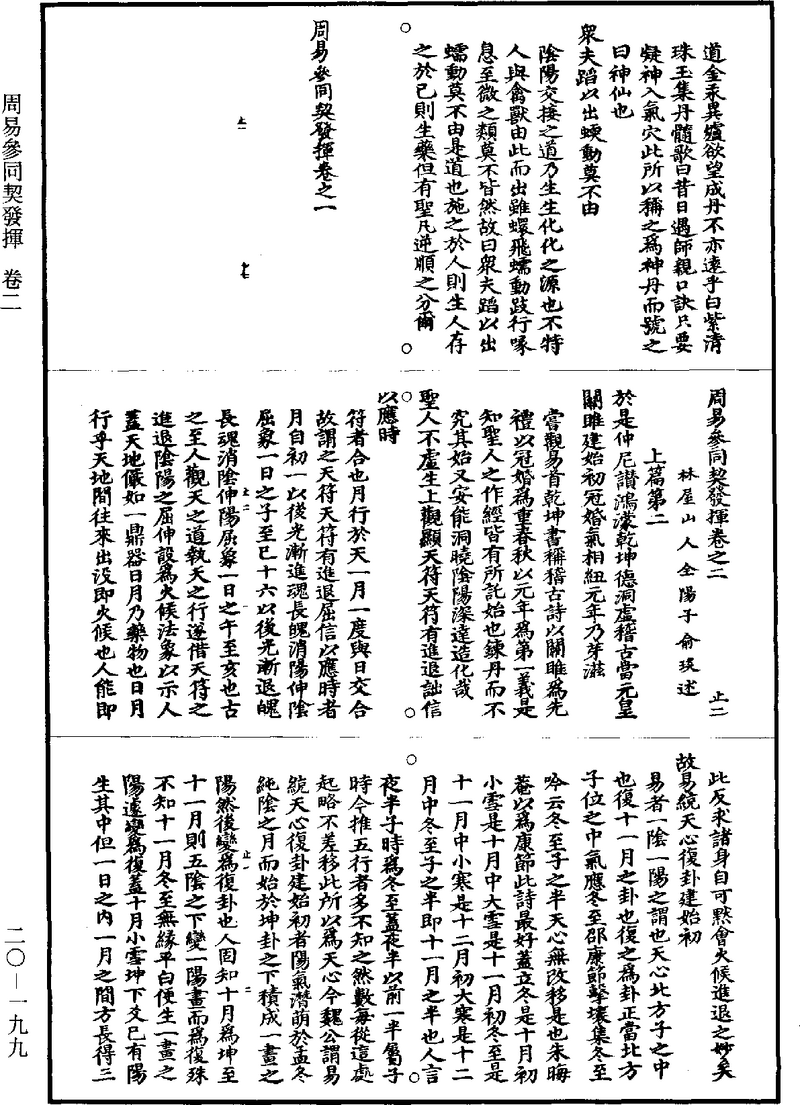 周易參同契發揮　卷二
二〇—一九九
道金汞異爐欲望成丹不亦遠乎白紫清
珠玉集丹髓歌曰昔日遇師親口訣只要
凝神入氣穴此所以稱之爲神丹而號之
曰神仙也
衆夫蹈以出蝡動莫不由
陰陽交接之道乃生生化化之源也不特
人與禽獸由此而出雖蠉飛蠕動跂行喙
息至微之類莫不皆然故曰衆夫蹈以出
蠕動莫不由是道也施之於人則生人存
之於已則生藥但有聖凡逆順之分爾
周易參同契發揮卷之一
周易參同契發揮卷之二
止二
林屋山人全陽子俞琰述
上篇第二
於是仲尼讃鴻濛乾坤德洞虛稽古當元皇
關雎建始初冠婚氣相紐元年乃芽滋
嘗觀易首乾坤書稱稽古詩以關雎爲先
禮以冠婚爲重春秋以元年爲第一義是
知聖人之作經皆有所託始也鍊丹而不
究其始又安能洞曉陰陽深達造化哉
聖人不虛生上觀顯天符天符有進退詘信
以應時
符者合也月行於天一月一度與日交合
故謂之天符天符有進退屈信以應時者
月自初一以後光漸進魂長魄消陽伸陰
屈象一日之子至巳十六以後光漸退魄
長魂消陰伸陽屈象一日之午至亥也古
之至人觀天之道執天之行遂借天符之
進退陰陽之屈伸設爲火候法象以示人
蓋天地儼如一鼎器日月乃藥物也日月
行乎天地間往來出没即火候也人能即
此反求諸身自可黙會火候進退之妙矣
故易統天心復卦建始初
易者一陰一陽之謂也天心北方子之中
也復十一月之卦也復之爲卦正當北方
子位之中氣應冬至邵康節擊壤集冬至
吟云冬至子之半天心無改移是也朱晦
菴以爲康節此詩最好蓋立冬是十月初
小雪是十月中大雪是十一月初冬至是
十一月中小寒是十二月初大寒是十二
月中冬至子之半即十一月之半也人言
夜半子時爲冬至蓋夜半以前一半屬子
時今推五行者多不知之然數每從這處
起略不差移此所以爲天心今魏公謂易
統天心復卦建始初者陽氣潛萌於孟冬
純陰之月而始於坤卦之下積成一畫之
陽然後變爲復卦也人固知十月爲坤至
十一月則五陰之下變一陽畫而爲復殊
不知十一月冬至無緣平白便生一畫之
陽遽變爲復蓋十月小雪坤下爻已有陽
生其中但一日之内一月之間方長得三